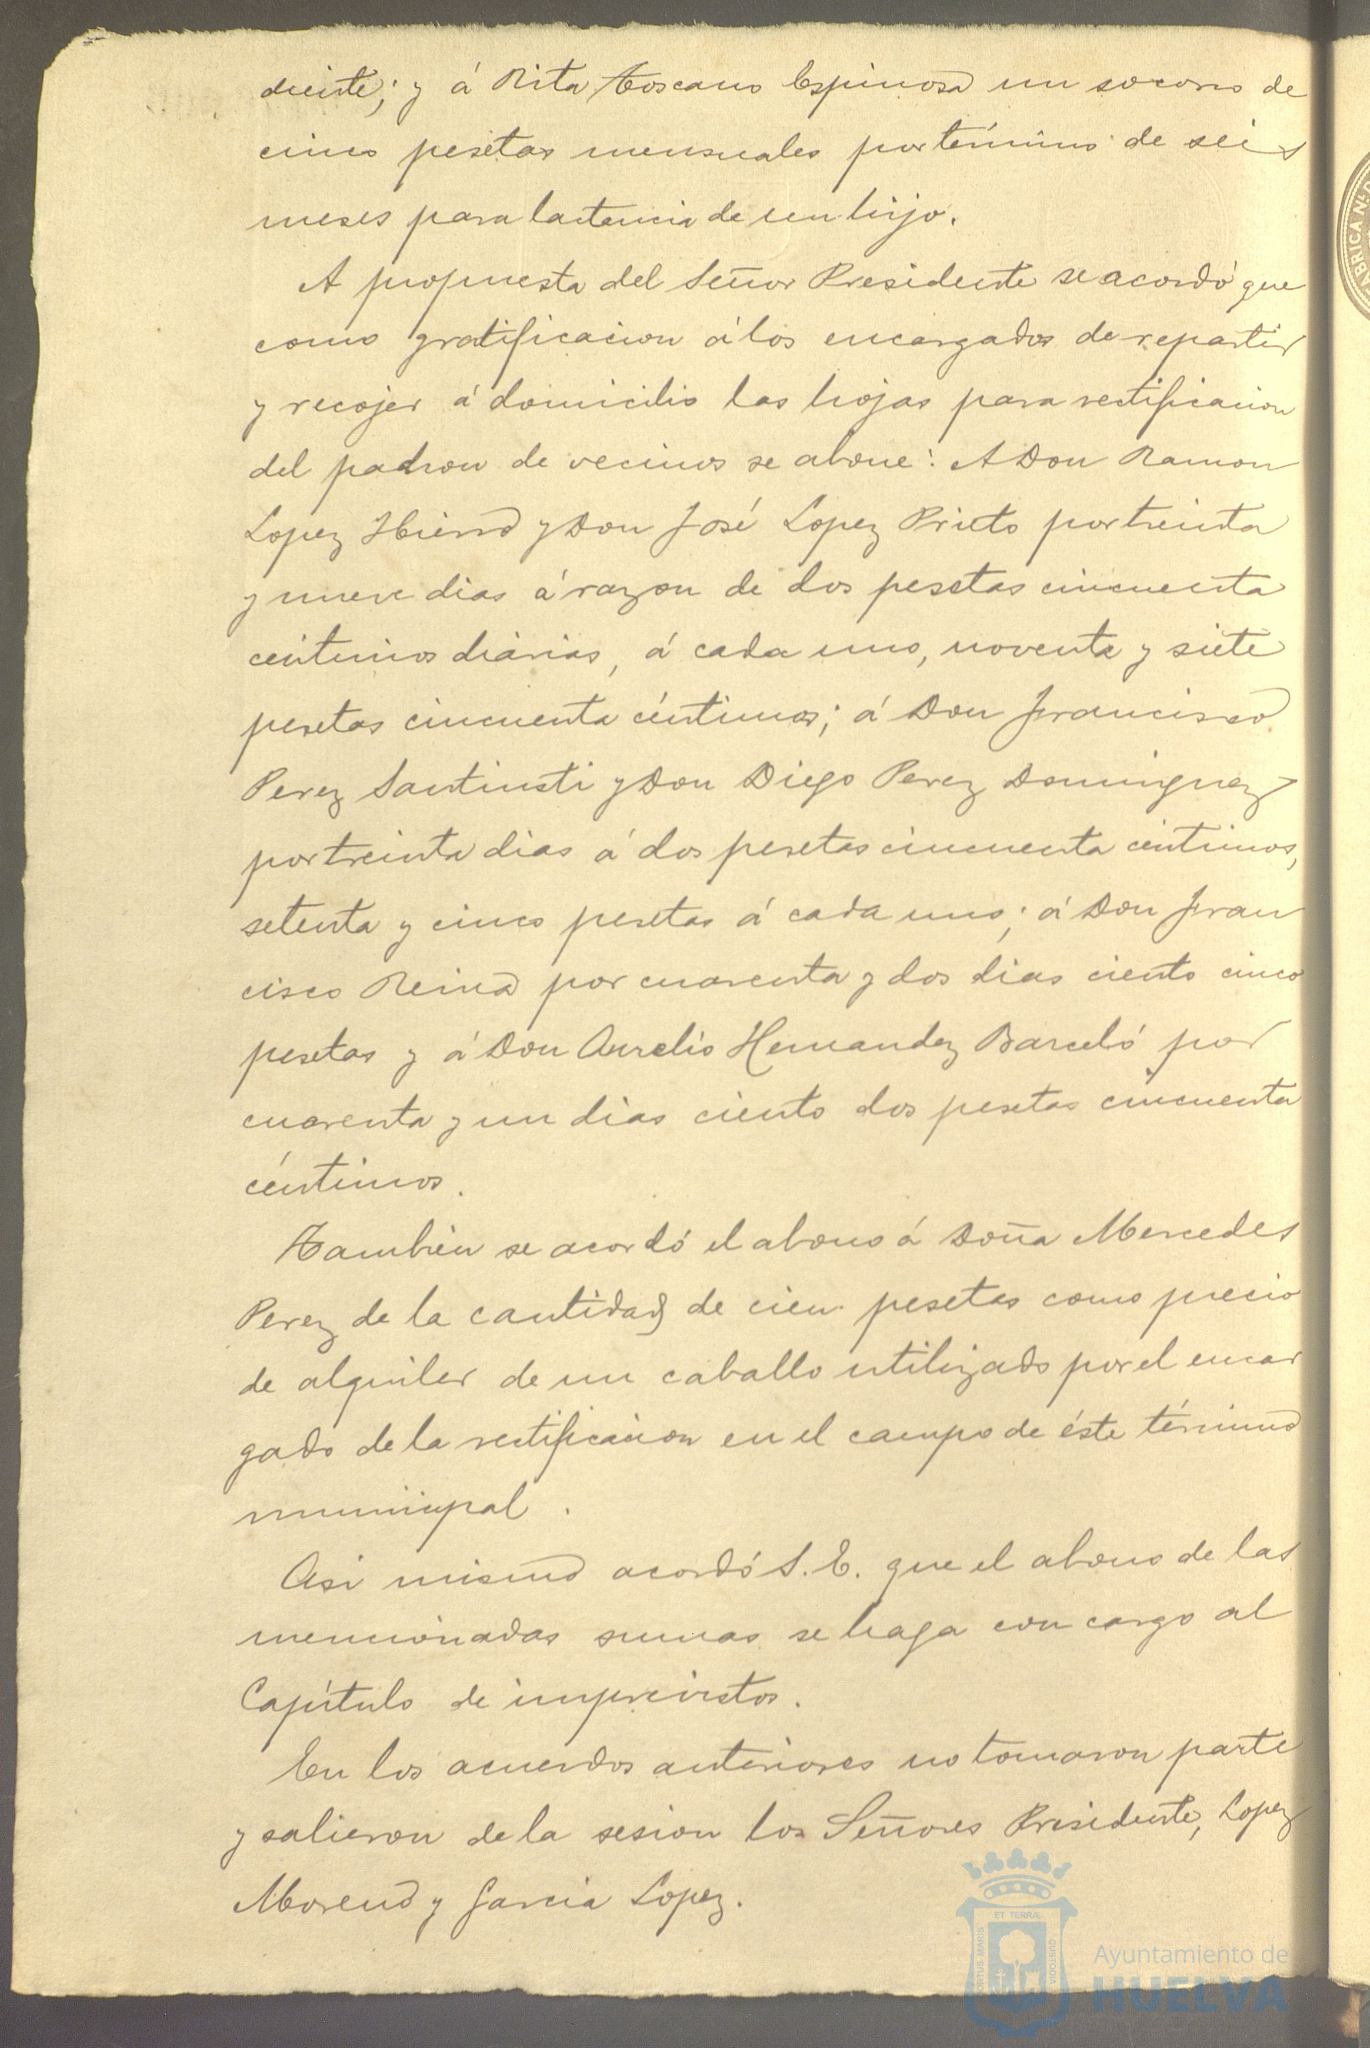 diente; y á Rita Toscano Espinosa un socorro de
cinco pesetas mensuales por término de seis
meses para lactancia de un hijo.
A propuesta del Señor Presidente se acordó que
como gratificacion á los encargados de repartir
y recojer á domicilio las hojas para rectificacion
del padron de vecinos se abone: A Don Ramon
Lopez Hierro y Don José Lopez Prieto por treinta
y nueve dias á razon de dos pesetas cincuenta
centimos diarias, á cada uno, noventa y siete
pesetas cincuenta céntimos; á Don Francisco
Perez Santiusti y Don Diego Perez Dominguez
por treinta dias á dos pesetas cincuenta centimos,
setenta y cinco pesetas á cada uno; á Don Fran
cisco Reina por cuarenta y dos dias ciento cinco
pesetas y á Don Aurelio Hernandez Barceló por
cuarenta y un dias ciento dos pesetas cincuenta
céntimos.
Tambien se acordó el abono á Doña Mercedes
Perez de la cantidad de cien pesetas como precio
de alquiler de un caballo utilizado por el encar
gado de la rectificacion en el campo de éste término
municipal.
Asi mismo acordó S. E. que el abono de las
mencionadas sumas se haga con cargo al
Capítulo de imprevistos.
En los acuerdos anteriores no tomaron parte
y salieron de la sesion los Señores Presidente, Lopez
Moreno y Garcia Lopez.
PORTUS MARIS ET TERRAE CUSTODIA
Ayuntamiento de
HUELVA